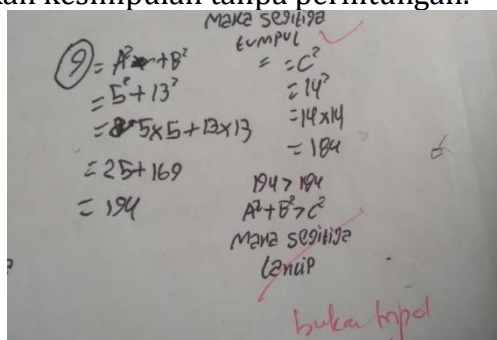 kan kesimpulan tanpa perhitungan.
Maka segitiga
tumpul
9 = A² + B²
= 5² + 13²
= 5x5 + 13x13
= 25 + 169
= 194
= = C²
= 14²
= 14x14
= 184
194 > 184
A² + B² > C²
Maka segitiga
lancip
bukan tripel